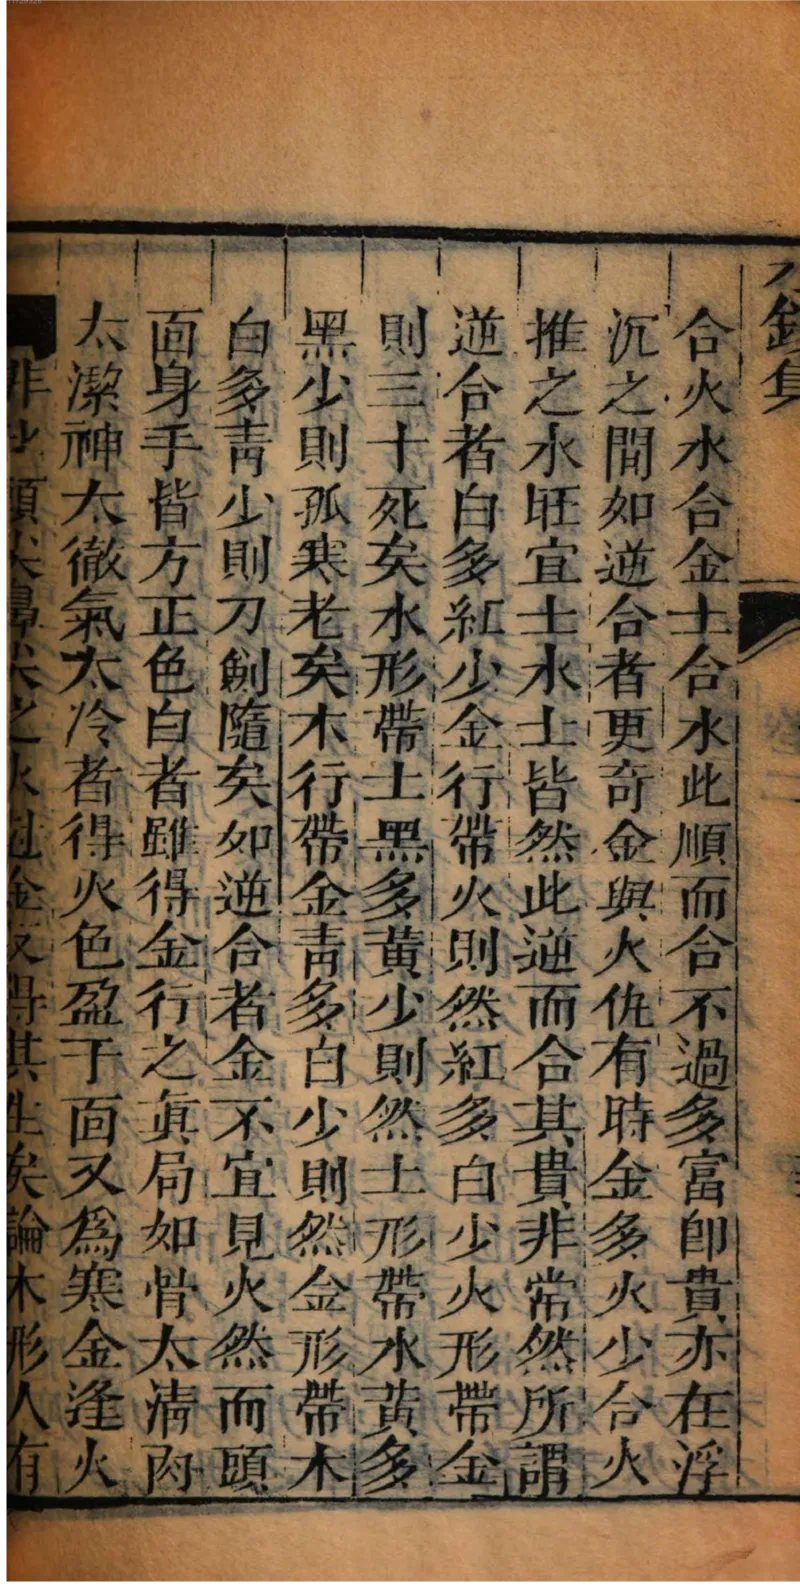 合火水合金土合水此順而合不過多富卽貴亦在浮
沉之間如逆合者更奇金與火仇有時金多火少合火
推之水旺宜土水土皆然此逆而合其貴非常然所謂
逆合者白多紅少金行帶火則然紅多白少火形帶金
則三十死矣水形帶土黑多黃少則然土形帶水黃多
黑少則孤寒老矣木行帶金靑多白少則然金形帶木
白多靑少則刀劍隨矣如逆合者金不宜見火然而頭
面身手皆方正色白者雖得金行之眞局如骨太淸肉
太潔神太徹氣太冷者得火色盈于面又爲寒金逢火
非
之
金
得其生矣論木形人有